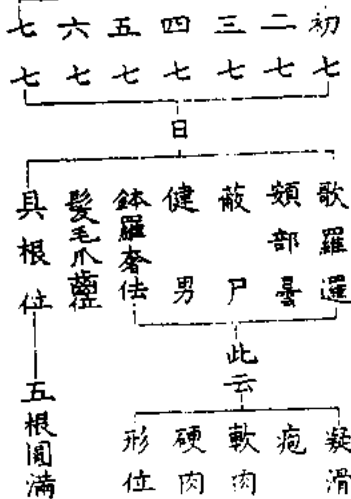 初七
二七
三七
四七
五七
六七
七七
日
歌羅邏
頞部曇
蔽尸
健男
鉢羅奢佉
髮毛爪齒位
具根位
此云
凝滑
疱
軟肉
硬肉
形位
五根圓滿